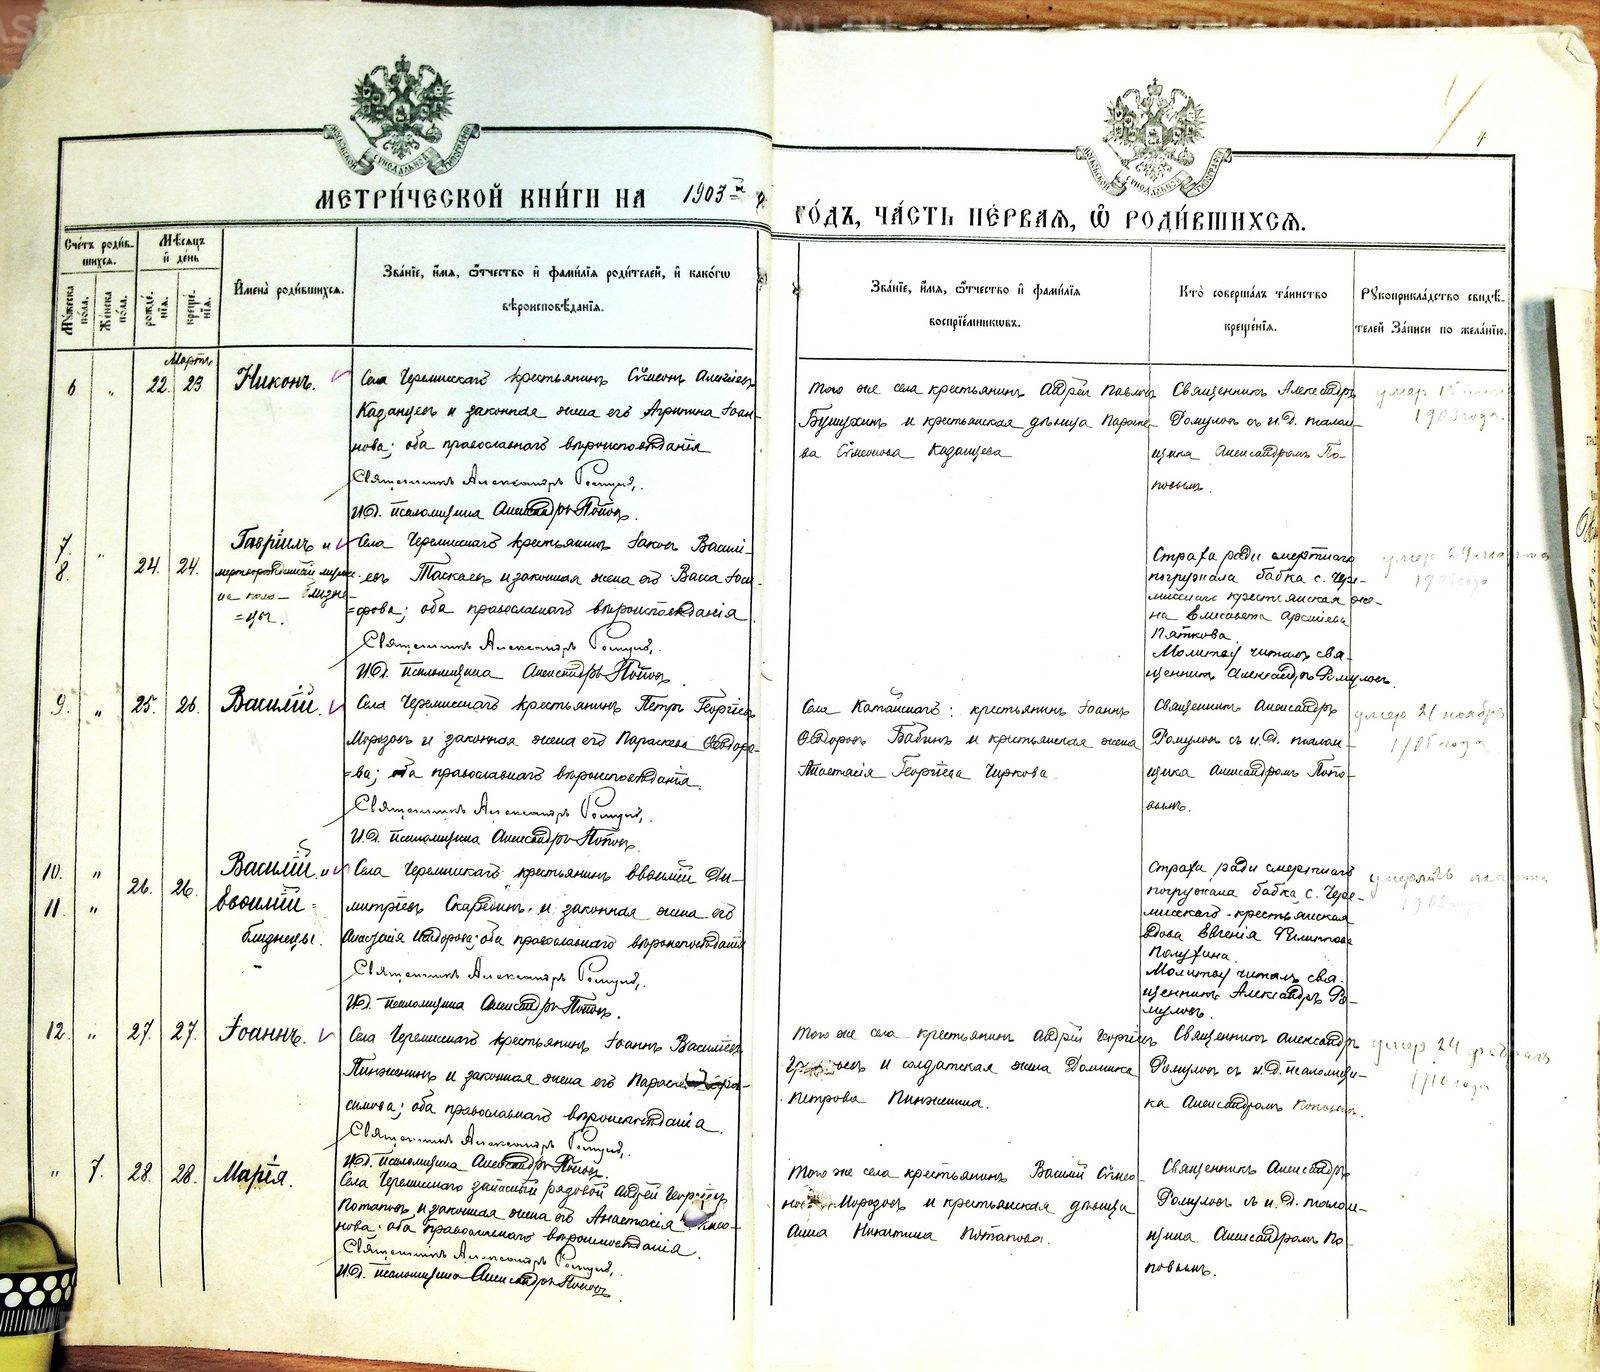 МЕТРИ́ЧЕСКОЙ КНИ́ГИ НА 1903 й
ГО́ДЪ, ЧА́СТЬ ПЕ́РВАЯ, Ѽ РОДИ́ВШИХСѦ.
Сче́тъ роди́в-
шихсѧ.
Мѣ́сѧцъ
и҆ де́нь
Мꙋ́жеска
по́ла.
Же́нска
по́ла.
рожде́-
нїѧ.
креще́-
нїѧ.
И҆мена̀ роди́вшихсѧ.
Зва́нїе, и҆́мѧ, ѻ҆́тчество и҆ фами́лїѧ роди́телей, и҆ како́гѡ
вѣроисповѣ́данїѧ.
Зва́нїе, и҆́мѧ, ѻ҆́тчество и҆ фами́лїѧ
воспрїе́мникѡвъ.
Кто̀ соверша́лъ та́инство
креще́нїѧ.
Рꙋкоприкла́дство свидѣ́-
телей За́писи по жела́нїю.
Мартъ
6 " 22. 23 Никонъ.
Села Черемисскаго крестьянинъ Сѵмеонъ Алексѣевъ
Казанцевъ и законная жена его Агрипина Іоан-
нова; оба православнаго вѣроисповѣданія
Священникъ Александръ Ромулов.
И.Д. псаломщика Александръ Поповъ.
того же села крестьянинъ Андрей Павловъ
и крестьянская дѣвица Параске-
ва Сѵмеонова Казанцева
Священникъ Александръ
Ромуловъ съ и.д. псалом-
щика Александромъ По-
повымъ.
умер
1903 года.
7. "
8. 24. 24. Гавріилъ и
мертворожденный мужес-
ка пола близне-
=цы.
Села Черемисскаго крестьянинъ Іаковъ Василі-
евъ Таскаевъ и законная жена его Васса Іоси-
=фова; оба православнаго вѣроисповѣданія
Священникъ Александръ Ромулов.
И.Д. псаломщика Александръ Поповъ.
Страха ради смертнаго
погружала бабка с. Чере-
мисскаго крестьянская же-
на Елисавета Арсеніева
Пяткова.
Молитву читалъ свя-
щенникъ Александръ Ромуловъ.
умер 24 марта
9. " 25. 26. Василій.
Села Черемисскаго крестьянинъ Петръ Георгіевъ
Морозовъ и законная жена его Параскева Ѳеодоро-
=ва; оба православнаго вѣроисповѣданія.
Священникъ Александръ Ромулов.
И.Д. псаломщика Александръ Поповъ.
Села Катайскаго: крестьянинъ Іоаннъ
Ѳеодоровъ Бабинъ и крестьянская жена
Анастасія Георгіева Чиркова.
Священникъ Александръ
Ромуловъ съ и.д. псалом-
щика Александромъ Попо-
вымъ.
умер 21 ноября
1905 года
10. " 26. 26. Василій и
11 " Евѳимій =
близнецы.
Села Черемисскаго крестьянинъ Евѳимій Ди-
митріевъ Скарединъ и законная жена его
Анастасія оба православнаго вѣроисповѣданія
Священникъ Александръ Ромулов.
И.Д. псаломщика Александръ Поповъ.
Страха ради смертнаго
погружала бабка с. Чере-
мисскаго крестьянская
вдова Евгенія Филиппова
Полухина.
Молитву читалъ свя-
щенникъ Александръ Ро-
муловъ.
умерли 26 марта
12. " 27. 27. Іоаннъ.
Села Черемисскаго крестьянинъ Іоаннъ Василіевъ
Пинженинъ и законная жена его
симова; оба православнаго вѣроисповѣданія.
Священникъ Александръ Ромулов.
И.Д. псаломщика Александръ Поповъ.
того же села крестьянинъ Андрей Георгіевъ
и солдатская жена Домника
Петрова Пинженина.
Священникъ Александръ
Ромуловъ съ и.д. псаломщи-
ка Александромъ Поповымъ.
умер 24 февраля
1910 года
" 7. 28. 28. Марія.
Села Черемисскаго запасный рядовой Андрей Георгіевъ
Потаповъ и законная жена его Анастасія
нова; оба православнаго вѣроисповѣданія.
Священникъ Александръ Ромулов.
И.Д. псаломщика Александръ Поповъ
того же села крестьянинъ Василій Сѵмео-
Морозовъ и крестьянская дѣвица
Анна Никитина Потапова.
Священникъ Александръ
Ромуловъ съ и.д. псалом-
щика Александромъ По-
повымъ.